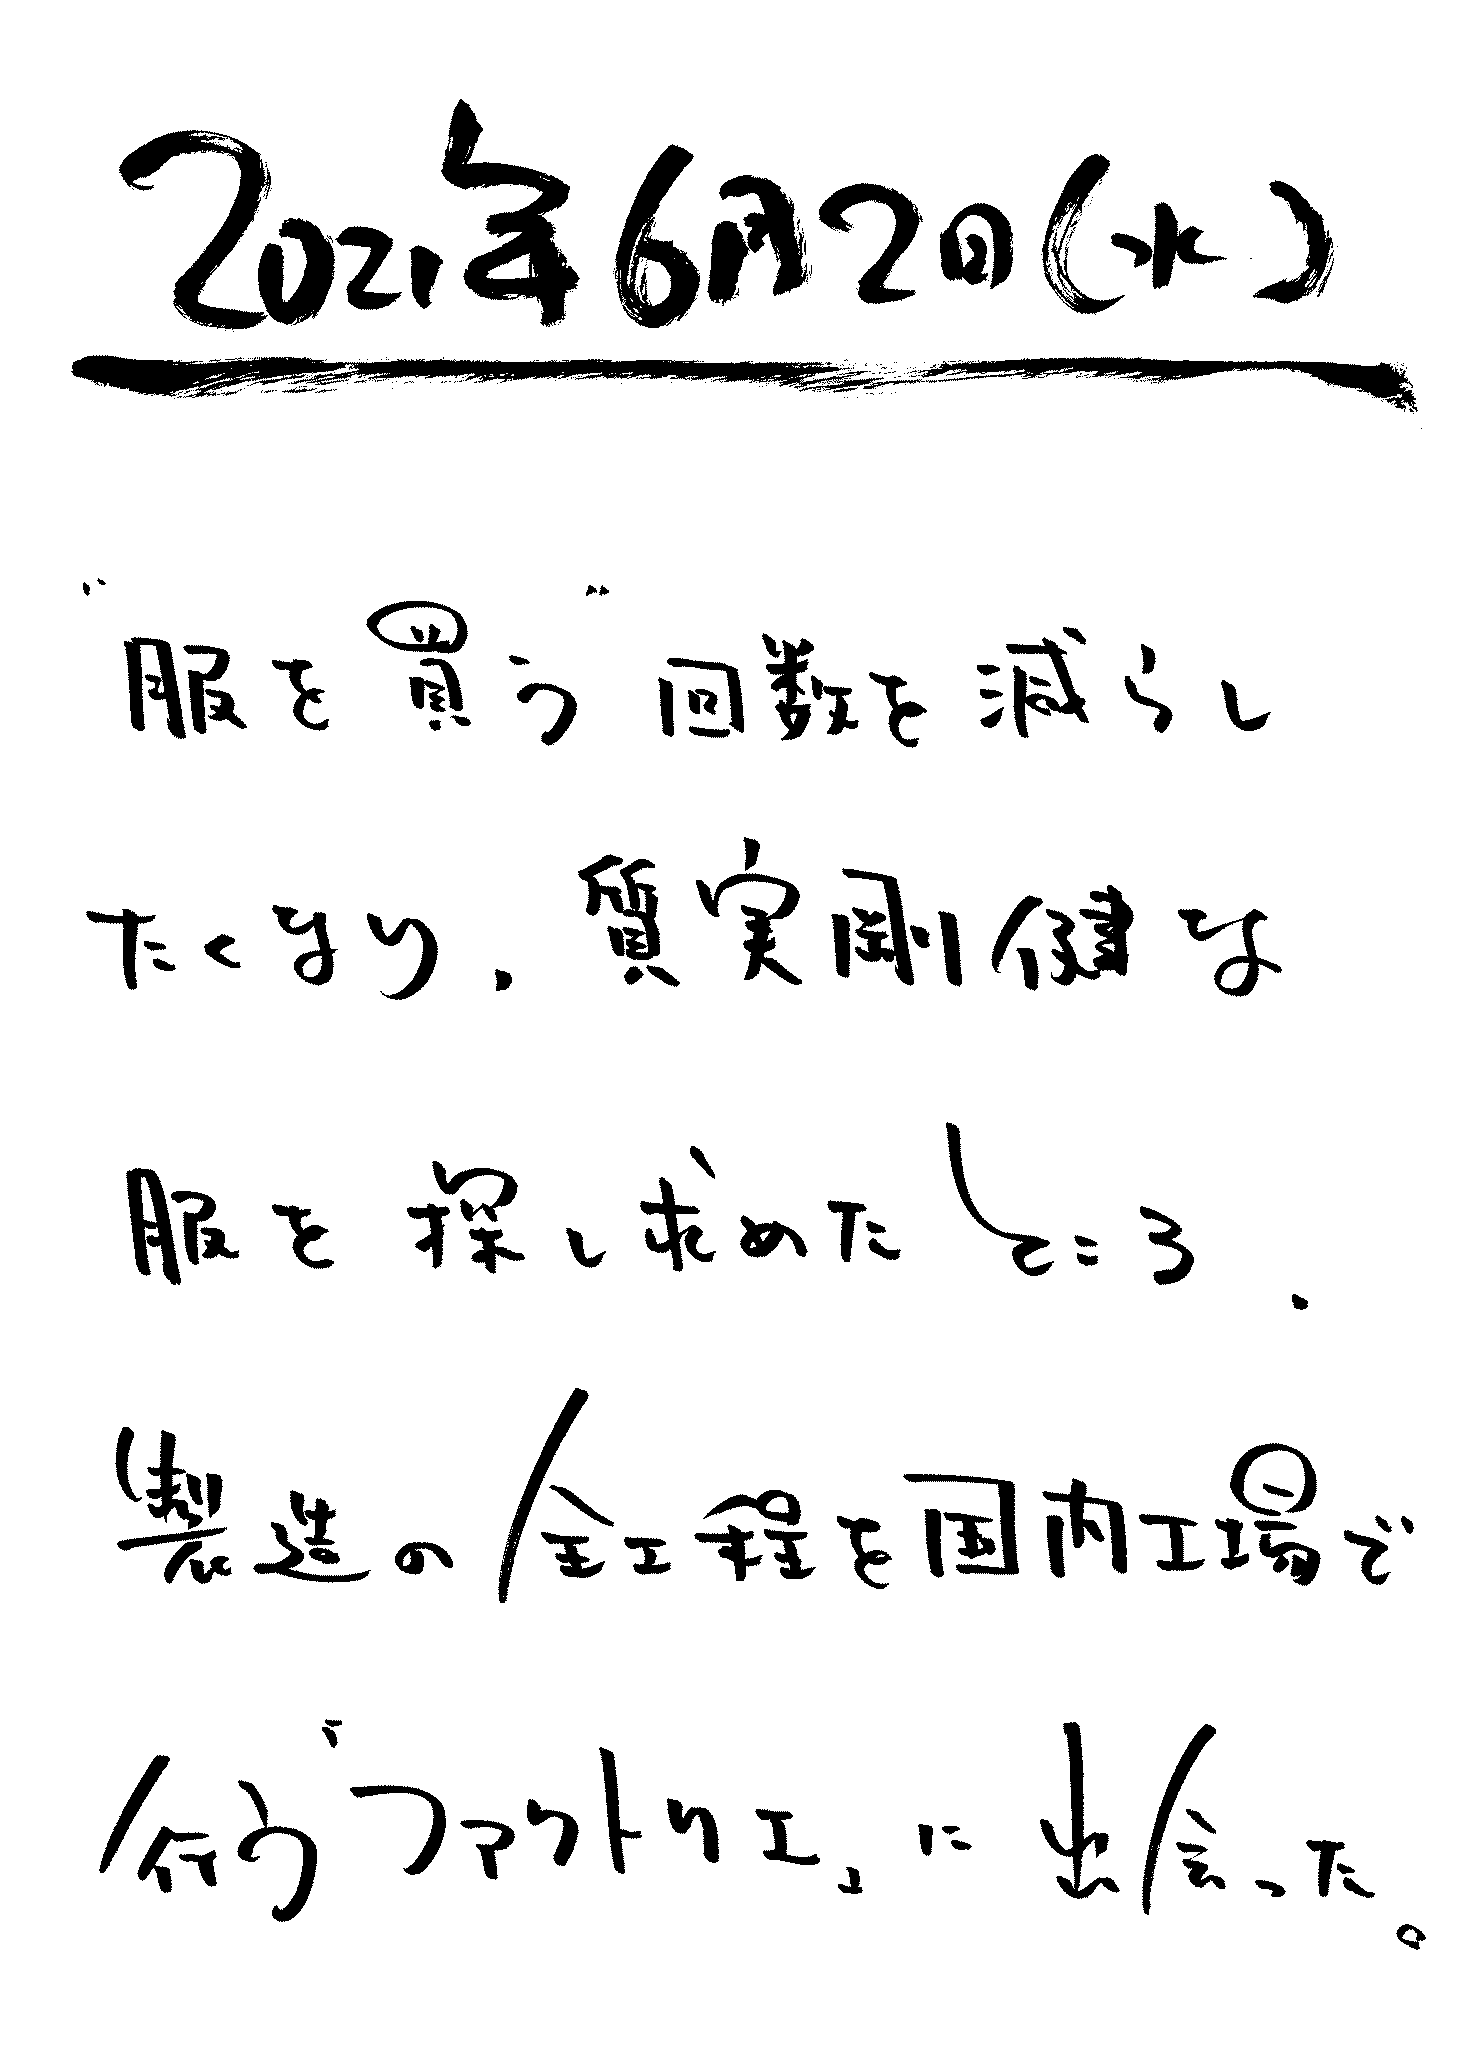 2021年6月2日(水)
"服を買う"回数を減らし
たくなり、質実剛健な
服を探し求めたところ、
製造の全工程を国内工場で
行う「ファクトリエ」に出会った。